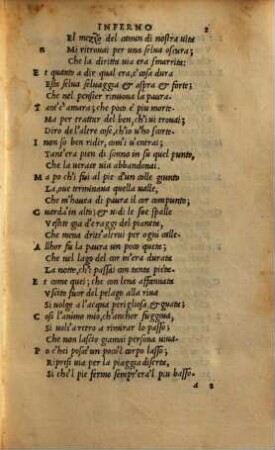 INFERNO 2
El mezzo del camin di nostra uita
N Mi ritrouai per una selua oscura;
Che la diritta uia era smarrita:
E t quanto a dir qual era, è cosa dura
Esta selua seluaggia & aspra & forte;
Che nel pensier rinuoua la paura.
T ant'è amara; che poco è piu morte.
Ma per trattar del ben, ch'i ui trouai;
Diro de l'altre cose, ch'io u'ho scorte.
I non so ben ridir, com'i u'entrai;
Tant'era pien di sonno in su quel punto,
Che la uerace uia abbandonai.
M a po ch'i fui al pie d'un colle giunto
La, oue terminaua quella ualle,
Che m'hauea di paura il cor compunto;
G uardai in alto; & uidi le sue spalle
Vestite gia de raggi del pianeta,
Che mena dritt'altrui per ogni calle.
A llhor fu la paura un poco queta;
Che nel lago del cor m'era durata
La notte, ch'i passai con tanta pieta.
E t come quei; che con lena affannata
Vscito fuor del pelago alla riua
Si uolge a l'acqua perigliosa, & guata;
C osi l'animo mio, ch'anchor fuggiua,
Si uols'a retro a rimirar lo passo;
Che non lascio giamai persona uiua.
P o c'hei posat'un poco'l corpo lasso;
Ripresi uia per la piaggia diserta,
Si che'l pie fermo sempr'era'l piu basso.
a 2